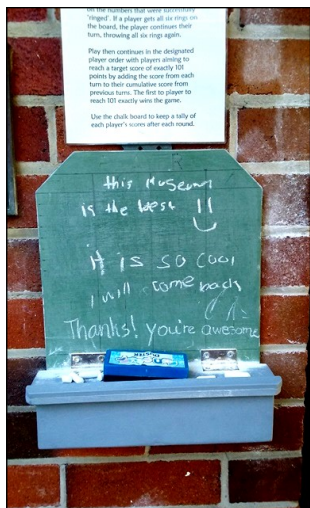 on the numbers that were successfully
'ringed'. If a player gets all six rings on
the board, the player continues their
turn, throwing all six rings again.
Play then continues in the designated
player order with players aiming to
reach a target score of exactly 101
points by adding the score from each
turn to their cumulative score from
previous turns. The first to player to
reach 101 exactly wins the game.
Use the chalk board to keep a tally of
each player's scores after each round.
this Museum
is the best !!
it is so cool
I will come back
Thanks! you're awesome
DUSTER